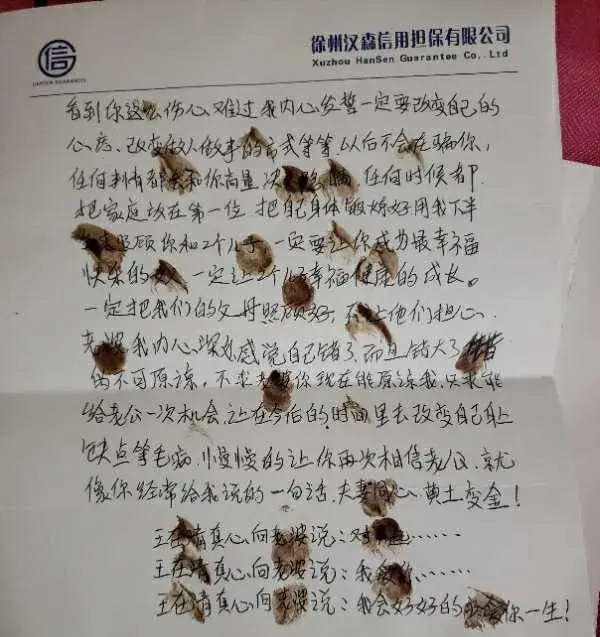 信
HANSEN GUARANTEE
徐州汉森信用担保有限公司
Xuzhou HanSen Guarantee Co., Ltd
看到你这么伤心难过我内心发誓一定要改变自己的
心态、改变做人做事的方式等等.以后不会在骗你,
任何事情都会和你商量决 任何时候都
把家庭放在第一位 把自己身体锻炼好用我下半
照顾你和2个儿子 一定要让你成为最幸福
快乐的 一定让2个儿子幸福健康的成长。
一定把我们的父母照顾好,不让他们担心.
老婆我内心深处感觉自己错了,而且错大了
的不可原谅,不求老婆你现在能原谅我,只求能
给老公一次机会,让在今后的时间里去改变自己身上
缺点等毛病,慢慢的让你再次相信老公,就
像你经常给我说的一句话.夫妻同心,黄土变金!
王在清真心向老婆说:对不起……
王在清真心向老婆说:我爱你……
王在清真心向老婆说:我会好好的 你一生!